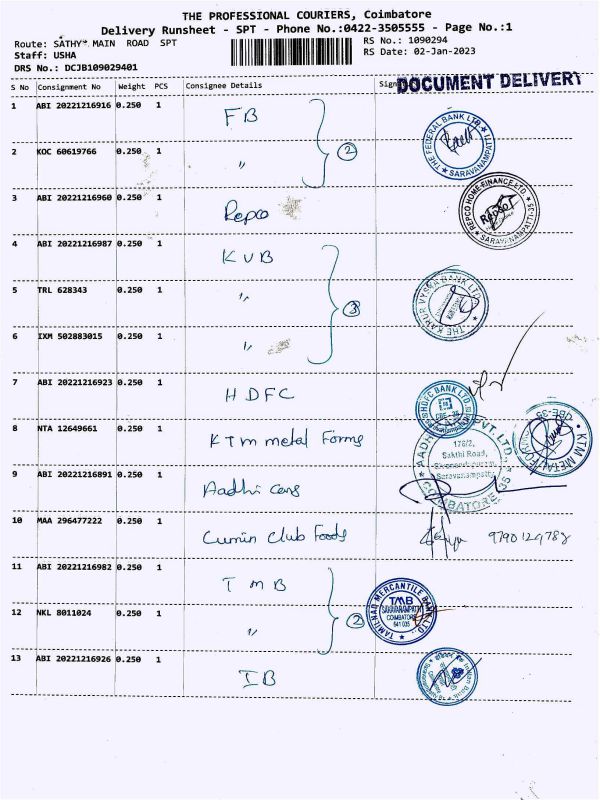 THE PROFESSIONAL COURIERS, Coimbatore
Delivery Runsheet - SPT - Phone No.:0422-3505555 - Page No.:1
Route: SATHY* MAIN ROAD SPT
RS No.: 1090294
Staff: USHA
RS Date: 02-Jan-2023
DRS No.: DCJB109029401
S No Consignment No Weight PCS Consignee Details Sign
DOCUMENT DELIVERY
1 ABI 20221216916 0.250 1 FB
THE FEDERAL BANK LTD. SARAVANAMPATTI
2 KOC 60619766 0.250 1 〃
2
3 ABI 20221216960 0.250 1 Repco
REPCO HOME FINANCE LTD. SARAVANAMPATTI-35
4 ABI 20221216987 0.250 1 KVB
5 TRL 628343 0.250 1 〃
3
THE KARUR VYSYA BANK LTD.
6 IXM 502883015 0.250 1 〃
7 ABI 20221216923 0.250 1 HDFC
HDFC BANK LTD.
CBE - 35
8 NTA 12649661 0.250 1 KTM metal Forms
KTM METAL FORMS CBE-35
AADHI PVT. LTD.
176/2,
Sakthi Road,
Saravanampatti
COIMBATORE-35
9 ABI 20221216891 0.250 1 Aadhi cars
10 MAA 296477222 0.250 1 Cumin Club Foods
9790129788
11 ABI 20221216982 0.250 1 TMB
12 NKL 8011024 0.250 1 〃
2
TAMILNAD MERCANTILE BANK LTD.
TMB
SARAVANAMPATTI
COIMBATORE
641 035
13 ABI 20221216926 0.250 1 IB
Indian Bank